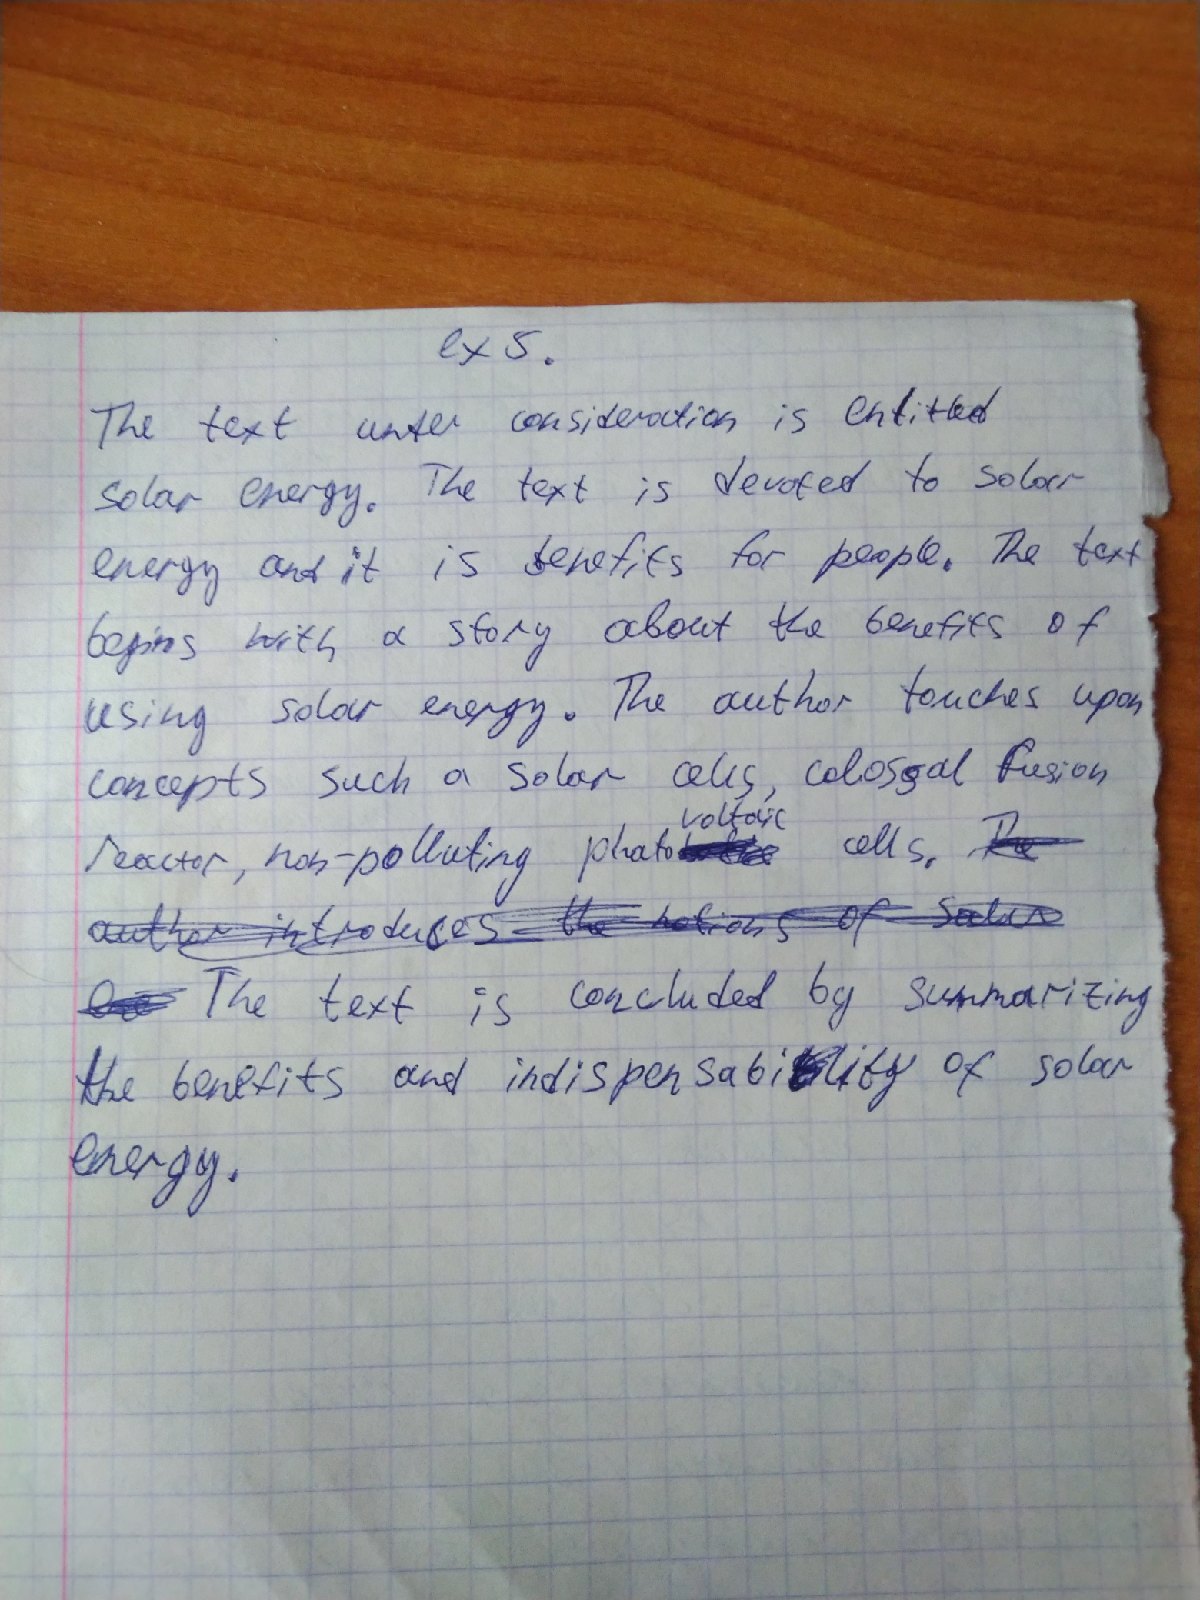 ex 5.
The text under consideration is entitled
solar energy. The text is devoted to solar
energy and it is benefits for people. The text
begins with a story about the benefits of
using solar energy. The author touches upon
concepts such a solar cells, colossal fusion
reactor, non-polluting photovoltaic cells. The
author introduces the notions of solar
The text is concluded by summarizing
the benefits and indispensability of solar
energy.